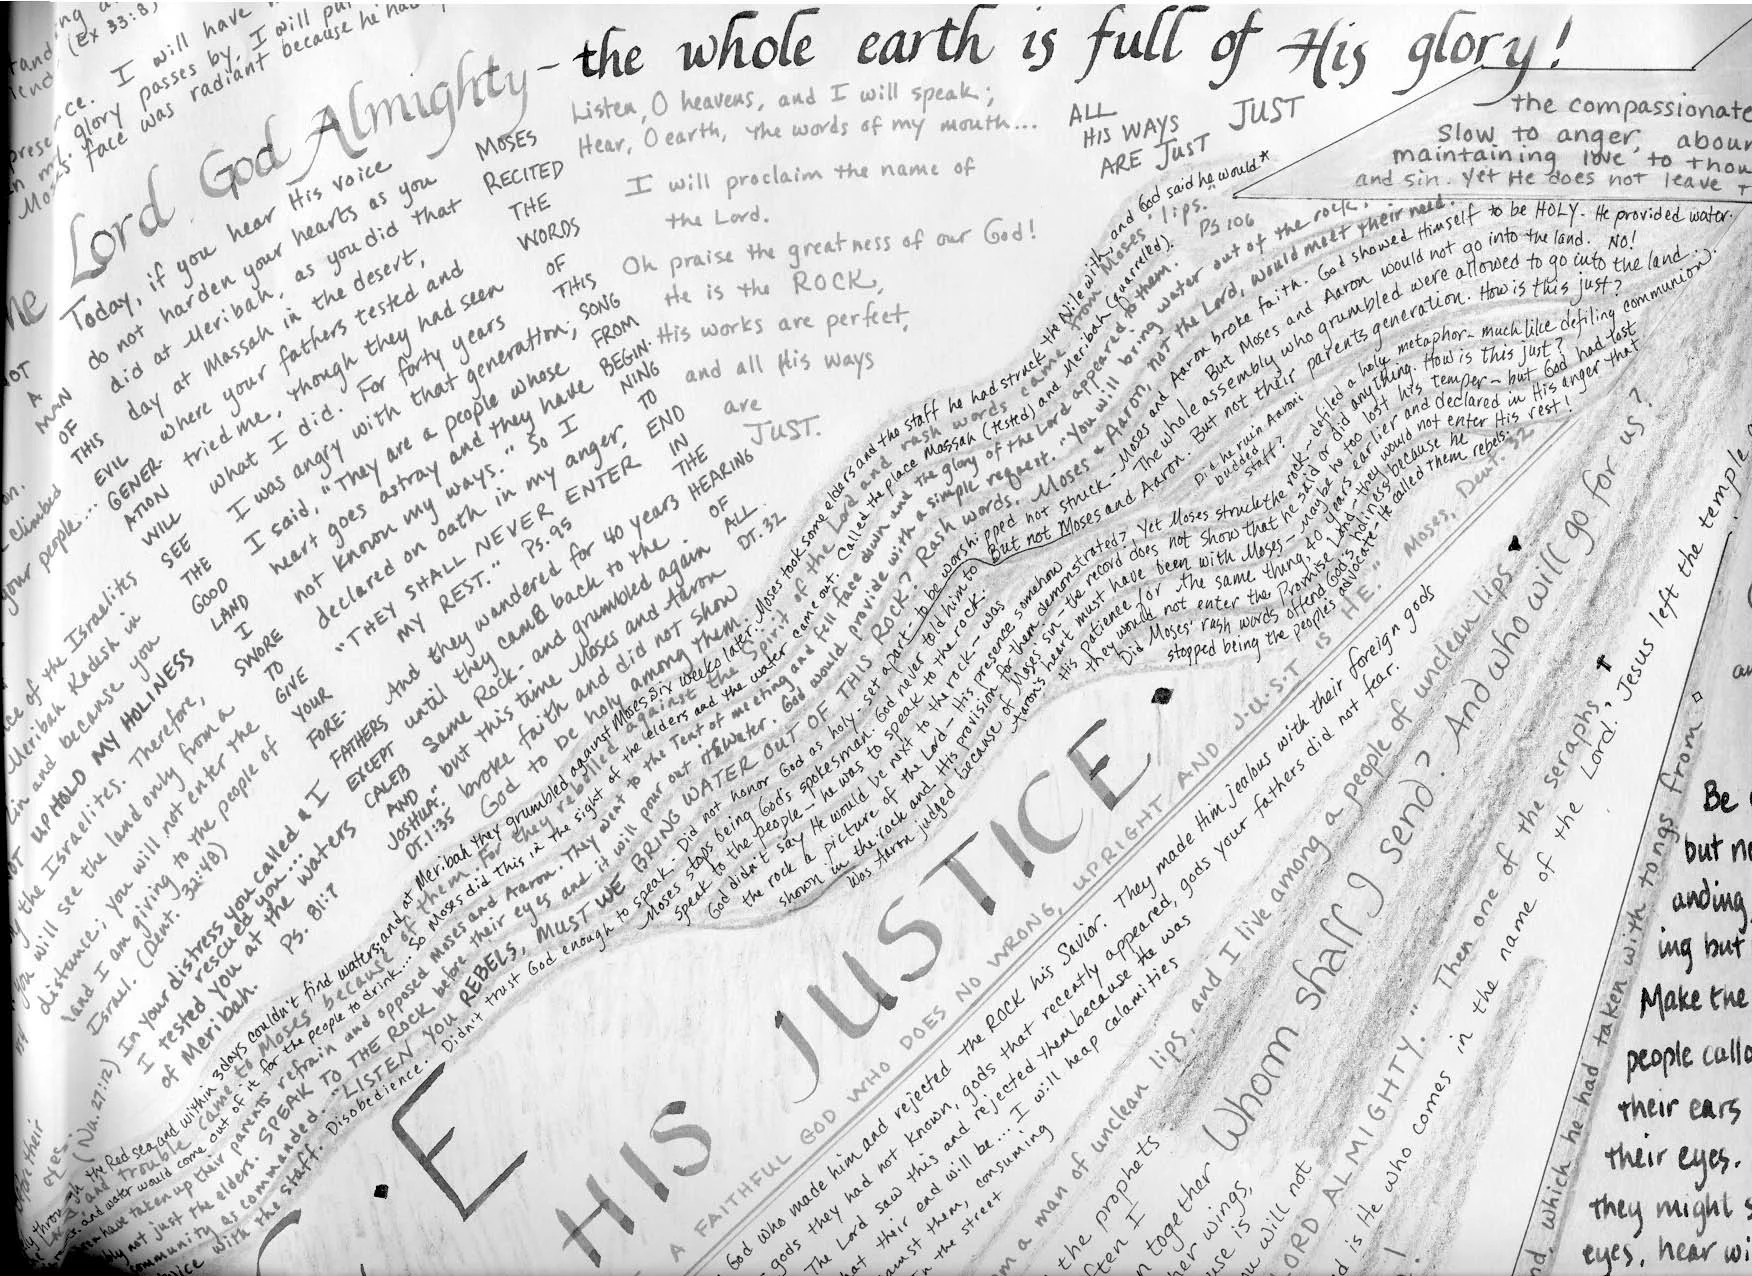 the whole earth is full of His glory!
Lord God Almighty -
tand
(Ex 33:8)
I will have
glory passes by, I will pu
Moses' face was radiant because he ha
Listen, O heavens, and I will speak;
Hear, O earth, the words of my mouth...
I will proclaim the name of
the Lord.
Oh praise the greatness of our God!
He is the ROCK,
His works are perfect,
and all His ways
are
JUST.
ALL
HIS WAYS
ARE JUST
JUST
the compassionate
Slow to anger, aboun
maintaining love to thou
and sin. Yet He does not leave t
MOSES
RECITED
THE
WORDS
OF
THIS
SONG
FROM
BEGIN-
NING
TO
END
IN
THE
HEARING
OF
ALL
DT. 32
Today, if you hear His voice
do not harden your hearts as you
did at Meribah, as you did that
day at Massah in the desert,
where your fathers tested and
tried me, though they had seen
what I did. For forty years
I was angry with that generation;
I said, "They are a people whose
heart goes astray and they have
not known my ways." So I
declared on oath in my anger,
"THEY SHALL NEVER ENTER
MY REST." Ps. 95
And they wandered for 40 years
until they came back to the
same Rock - and grumbled again
but this time Moses and Aaron
broke faith and did not show
God to be holy among them.
NOT
A
MAN
OF
THIS
EVIL
GENER-
ATION
WILL
SEE
THE
GOOD
LAND
I
SWORE
TO
GIVE
YOUR
FORE-
FATHERS
EXCEPT
CALEB
AND
JOSHUA."
DT. 1:35
climbed
your people...
ce of the Israelites
Meribah Kadesh in
Zin and because you
NOT UPHOLD MY HOLINESS
the Israelites. Therefore,
you will see the land only from a
distance; you will not enter the
land I am giving to the people of
Israel. (Deut. 32:48)
In your distress you called & I
rescued you...
I tested you at the waters
of Meribah. Ps. 81:7
(Nu. 27:12)
the Red sea and within 3 days couldn't find waters: and at Meribah they grumbled against Moses. Six weeks later. Moses took some elders and the staff he had struck the Nile with, and God said he would*
and water would come out of it for the people to drink... So Moses did this in the sight of the elders and the water came out. Called the place Massah (tested) and Meribah (quarreled).
and trouble came to Moses because of them. For they rebelled against the Spirit of the Lord and rash words came from Moses' lips." PS 106
have taken up their parents refrain and opposed Moses and Aaron. They went to the Tent of meeting and fell face down and the glory of the Lord appeared to them.
not just the elders. SPEAK TO THE ROCK before their eyes and it will pour out its water. God would provide with a simple request. "You will bring water out of the rock.
community as commanded. "LISTEN YOU REBELS, MUST WE BRING WATER OUT OF THIS ROCK? Rash words. Moses & Aaron, not the Lord, would meet their need.
with the staff. Disobedience. Didn't trust God enough to speak. Did not honor God as holy - set apart - to be worshipped not struck - Moses and Aaron broke faith. God showed Himself to be HOLY. He provided water.
Moses stops being God's spokesman. God never told him to
But not Moses and Aaron.
But Moses and Aaron would not go into the land. NO!
The whole assembly who grumbled were allowed to go into the land.
But not their parents generation. How is this just?
Speak to the people - he was to speak to the rock.
God didn't say He would be next to the rock - was His presence somehow
the rock a picture of the Lord - His provision for them demonstrated? Yet Moses struck the rock - defiled a holy metaphor - much like defiling communion).
shown in the rock and
Did he ruin Aaron's
budded
staff?
Was Aaron judged because of Moses' sin - the record does not show that he said or did anything. How is this just?
Aaron's heart must have been with Moses - Maybe he too lost his temper - but God had lost
His patience for the same thing, 40 years earlier and declared in His anger that
they would not enter the Promise Land - they would not enter His rest!
Did Moses' rash words offend God's holiness because he
stopped being the people's advocate - He called them rebels.
E
HIS JUSTICE
A FAITHFUL GOD WHO DOES NO WRONG, UPRIGHT AND J.U.S.T IS HE." Moses, Deut. 32
God who made him and rejected the ROCK his Savior. They made Him jealous with their foreign gods
gods they had not known, gods that recently appeared, gods your fathers did not fear.
The Lord saw this and rejected them because He was
that their end will be... I will heap calamities
against them, consuming
in the street
a man of unclean lips, and I live among a people of unclean lips
the prophets
often I
together
her wings,
Whom shall I send? And who will go for us?
will not
LORD ALMIGHTY." Then one of the seraphs
is He who comes in the name of the Lord. Jesus left the temple
and, which he had taken with tongs from
Be
but ne
anding
ing but
Make the
people callo
their ears
their eyes.
they might s
eyes, hear wi